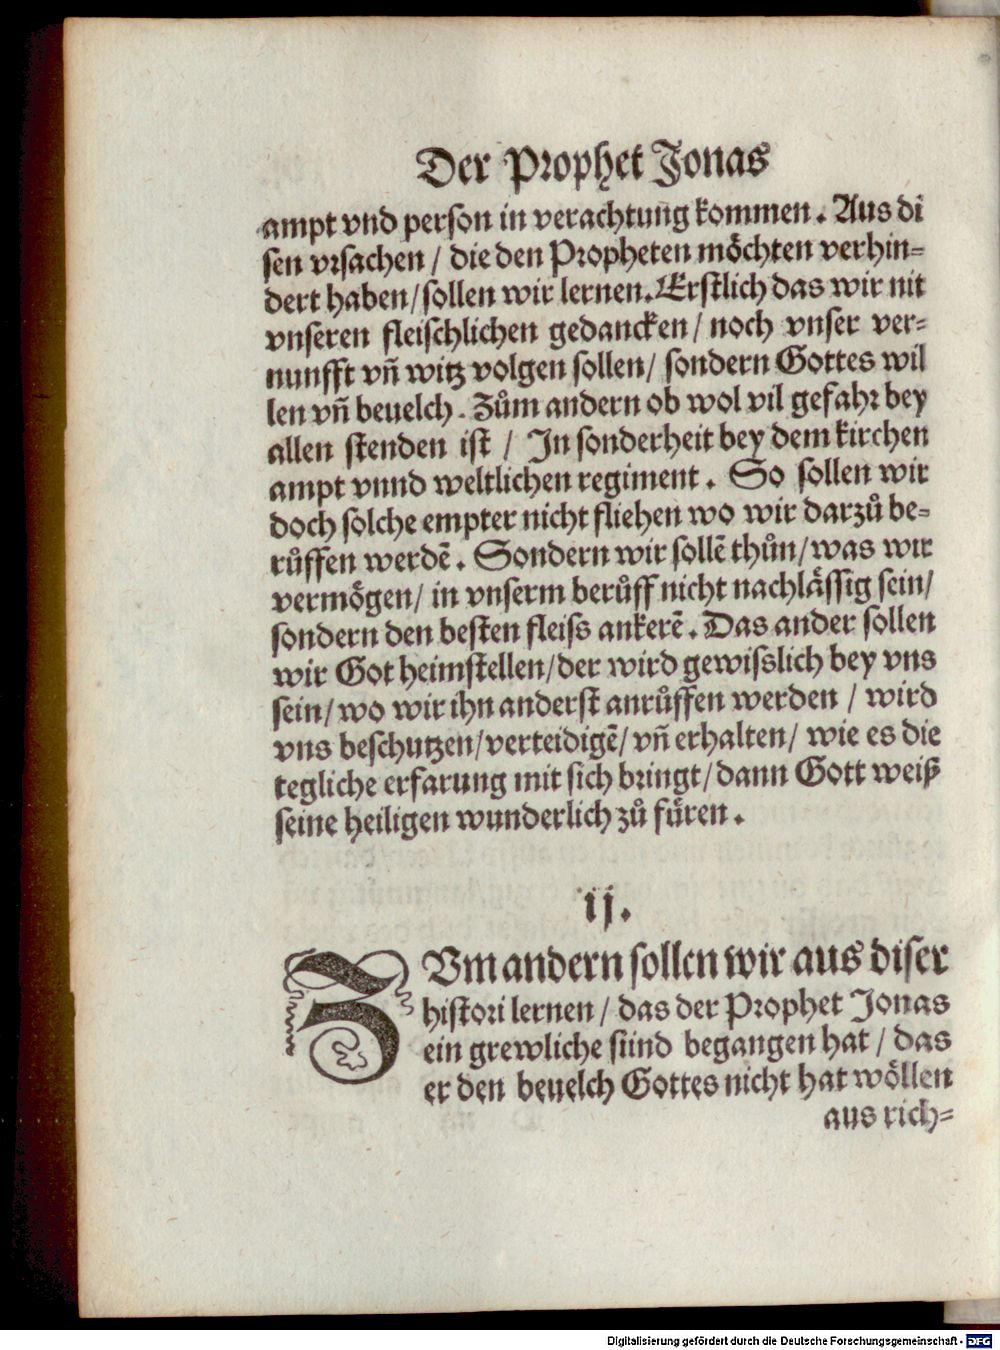 Der Prophet Jonas
ampt vnd person in verachtung kommen. Aus di
sen vrsachen / die den Propheten möchten verhin-
dert haben/ sollen wir lernen. Erstlich das wir nit
vnseren fleischlichen gedancken/ noch vnser ver-
nunfft vñ witz volgen sollen/ sondern Gottes wil
len vñ beuelch. Zům andern ob wol vil gefahr bey
allen stenden ist / In sonderheit bey dem kirchen
ampt vnnd weltlichen regiment. So sollen wir
doch solche empter nicht fliehen wo wir darzů be-
růffen werdē. Sondern wir sollē thůn/ was wir
vermögen/ in vnserm berůff nicht nachlässig sein/
sondern den besten fleiss ankerē. Das ander sollen
wir Got heimstellen/ der wird gewisslich bey vns
sein/ wo wir ihn anderst anrůffen werden / wird
vns beschutzen/ verteidigē/ vñ erhalten/ wie es die
tegliche erfarung mit sich bringt/ dann Gott weiß
seine heiligen wunderlich zů füren.
ij.
ZVm andern sollen wir aus diser
histori lernen / das der Prophet Jonas
ein grewliche sünd begangen hat / das
er den beuelch Gottes nicht hat wöllen
aus rich-
Digitalisierung gefördert durch die Deutsche Forschungsgemeinschaft - DFG